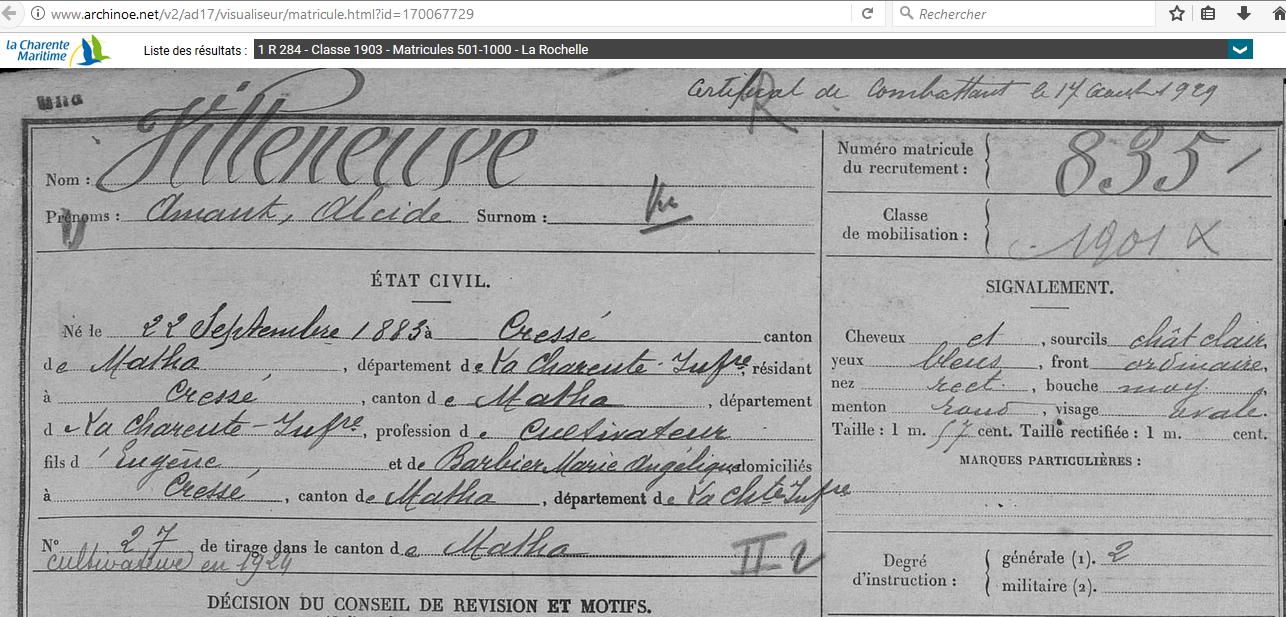 www.archinoe.net/v2/ad17/visualiseur/matricule.html?id=170067729
Rechercher
la Charente Maritime
Liste des résultats : 1 R 284 - Classe 1903 - Matricules 501-1000 - La Rochelle
Certificat de Combattant le 14 août 1929
R
Nom : Villeneuve
Numéro matricule du recrutement : 835
Prénoms : Amant, Alcide Surnom :
Classe de mobilisation : 1901
ÉTAT CIVIL.
SIGNALEMENT.
Né le 22 Septembre 1883 à Cressé canton
Cheveux et , sourcils chât clair,
de Matha , département de La Charente-Infre, résidant
yeux bleus , front ordinaire,
à Cressé , canton de Matha , département
nez rect. , bouche moy.
d La Charente-Infre, profession de cultivateur
menton rond , visage ovale.
Taille : 1 m. 57 cent. Taille rectifiée : 1 m. cent.
fils d' Eugène et de Barbier Marie Angélique domiciliés
MARQUES PARTICULIÈRES :
à Cressé , canton de Matha , département de La Chte Infre
N° 27 de tirage dans le canton de Matha
II 2
cultivateur en 1924
Degré d'instruction : générale (1). 2
militaire (2).
DÉCISION DU CONSEIL DE REVISION ET MOTIFS.